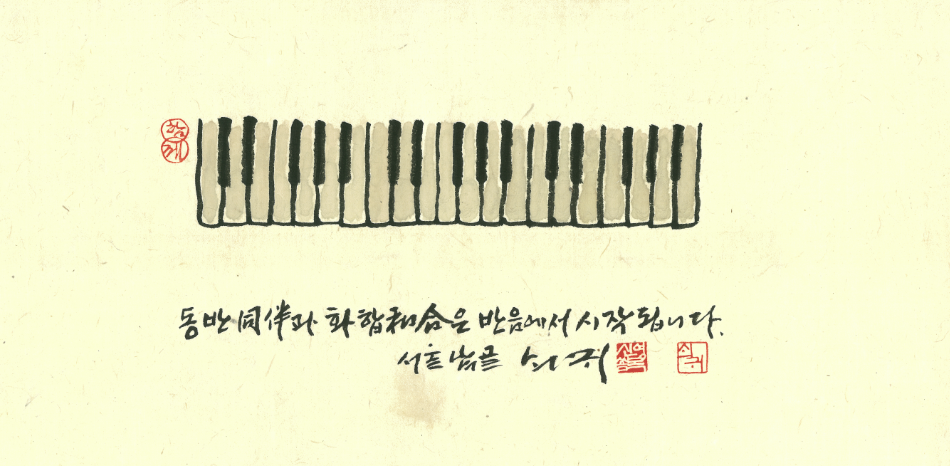 함께
동반同伴과 화합和合은 반음에서 시작됩니다.
서툰 글 쇠귀
쇠귀